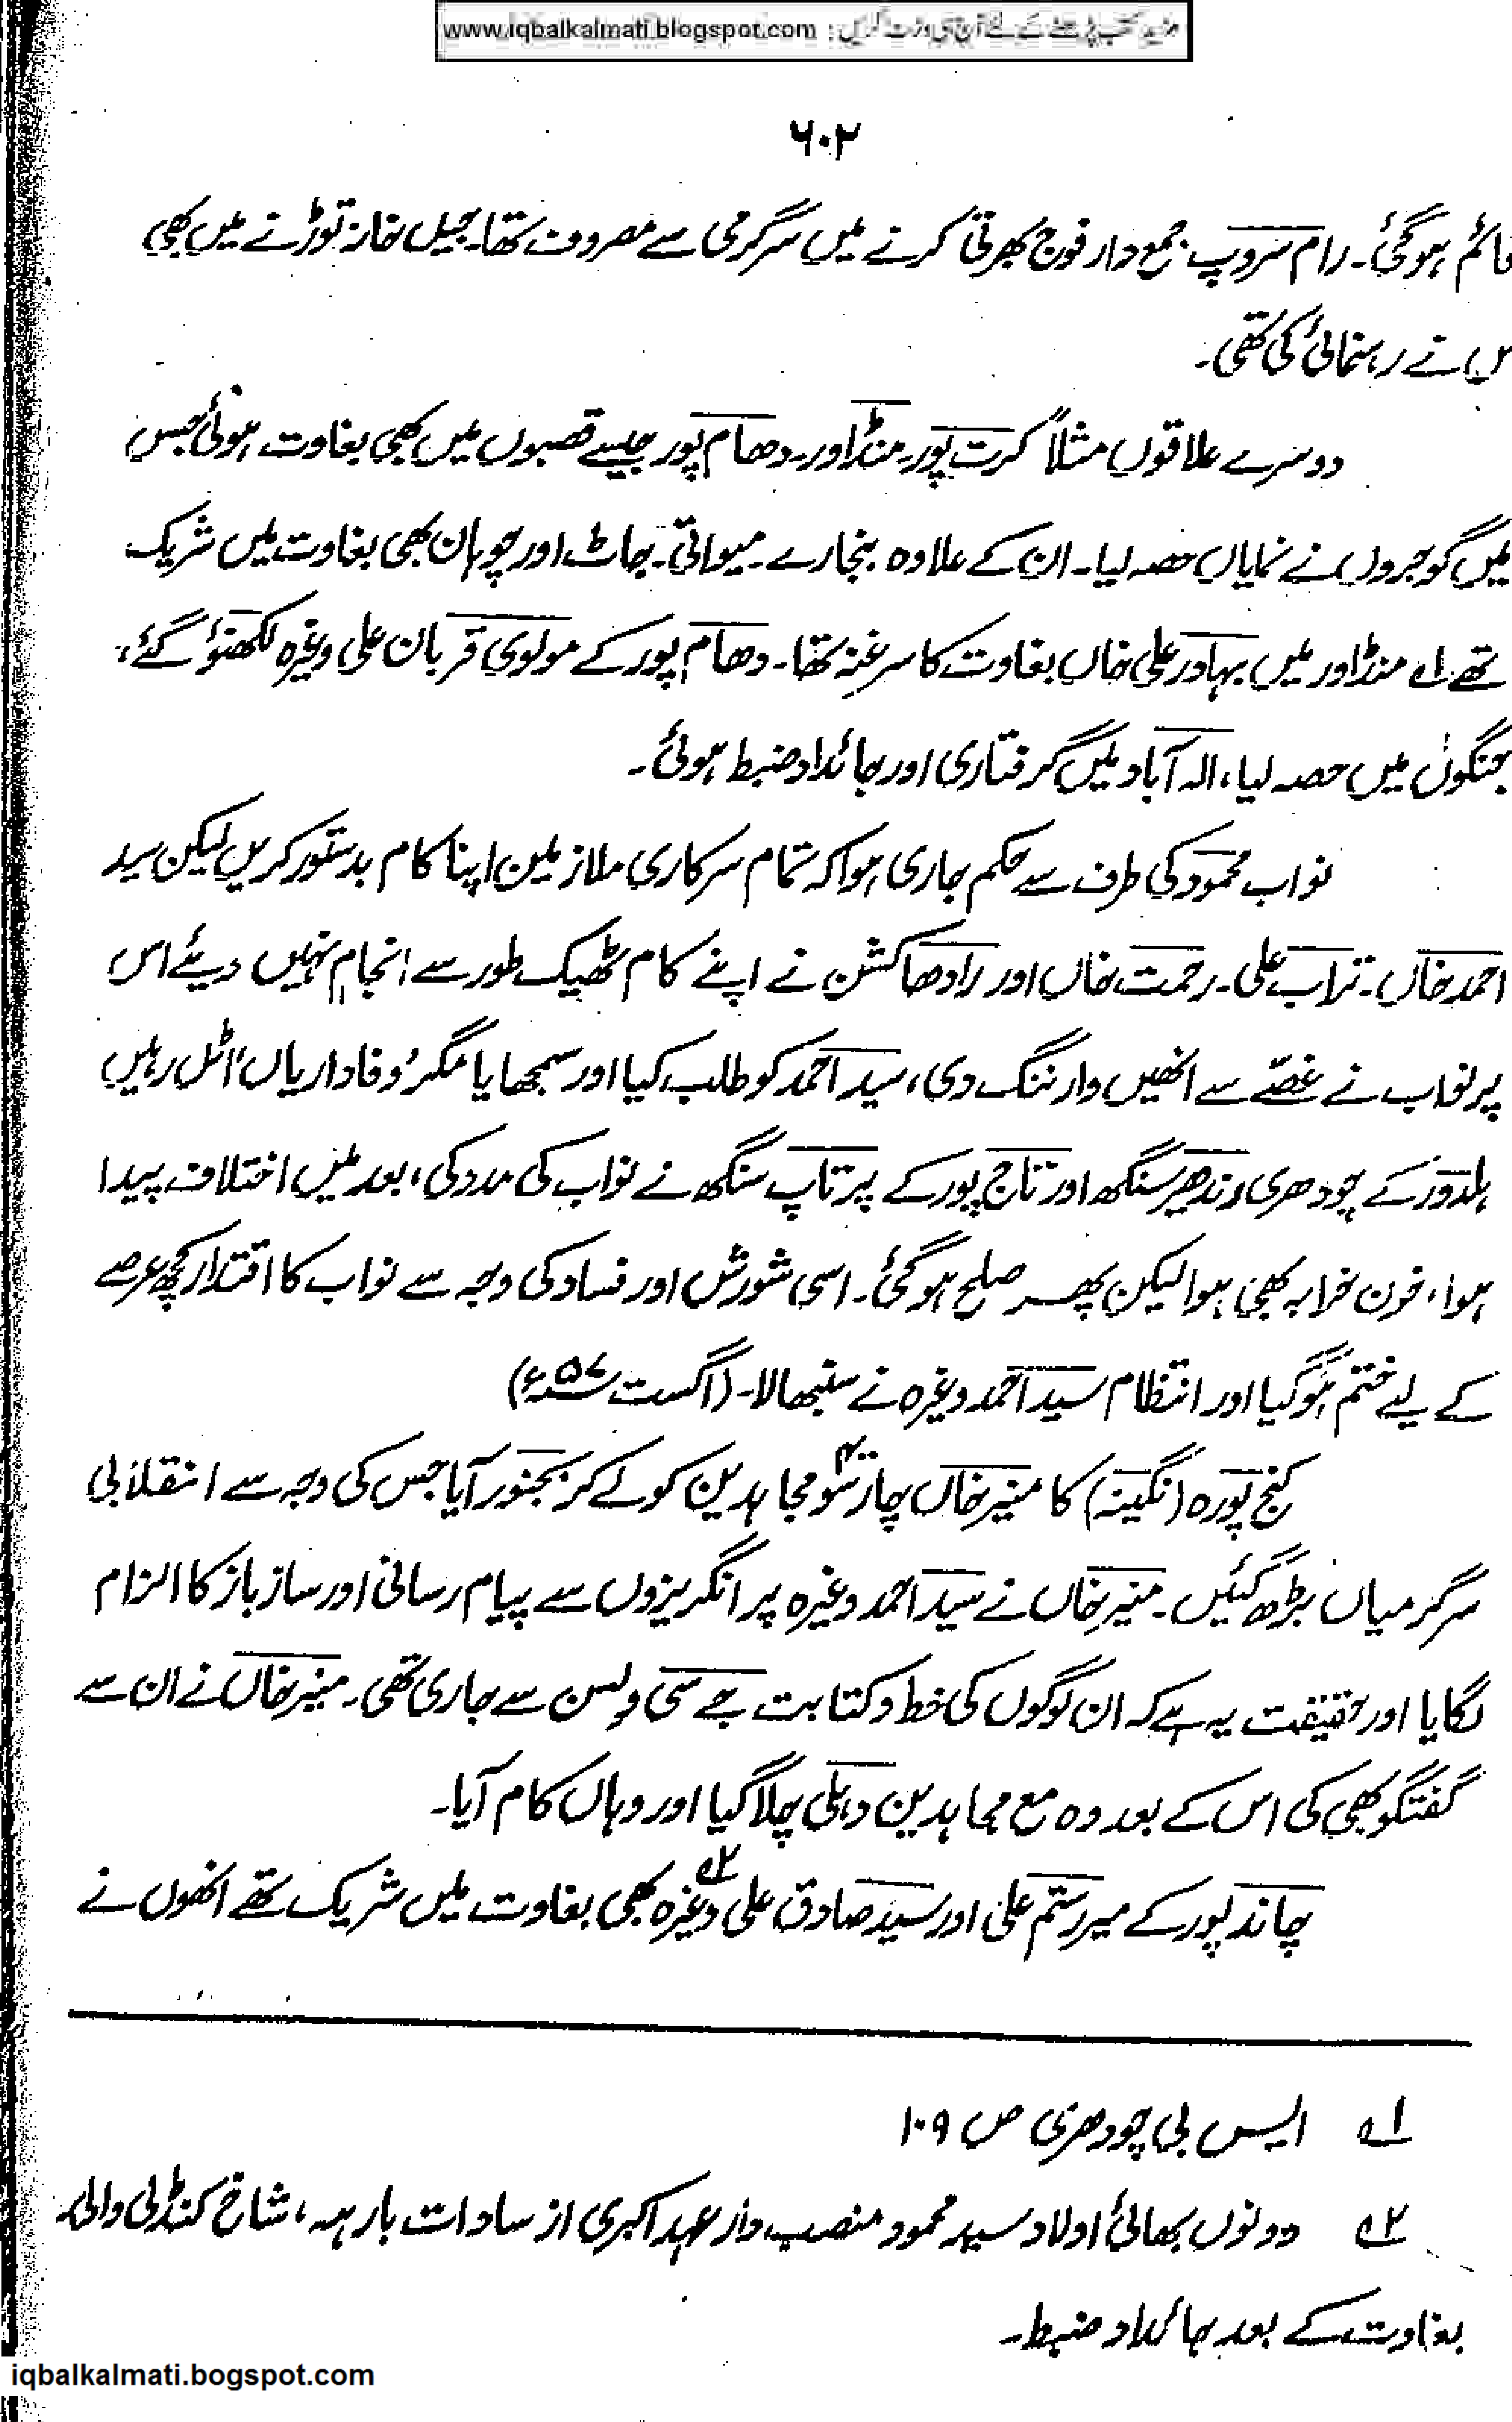 مزید کتب پڑھنے کے لئے آج ہی وزٹ کریں : www.iqbalkalmati.blogspot.com
۶۰۲
قائم ہوگئی۔ رام سروپ جمع دار فوج بھرتی کرنے میں سرگرمی سے مصروف تھا۔ جیل خانہ توڑنے میں بھی
اس نے رہنمائی کی تھی۔
دوسرے علاقوں مثلاً کرت پور۔ منڈاور۔ دھام پور جیسے قصبوں میں بھی بغاوت ہوئی جس
میں گوجروں نے نمایاں حصہ لیا۔ ان کے علاوہ بنجارے۔ میواتی۔ جاٹ اور چوہان بھی بغاوت میں شریک
تھے ۱؎ منڈاور میں بہادر علی خاں بغاوت کا سرغنہ تھا۔ دھام پور کے مولوی قربان علی وغیرہ لکھنؤ گئے،
جنگوں میں حصہ لیا، الہ آباد میں گرفتاری اور جائداد ضبط ہوئی۔
نواب محمود کی طرف سے حکم جاری ہوا کہ تمام سرکاری ملازمین اپنا کام بدستور کریں لیکن سید
احمد خاں۔ تراب علی۔ رحمت خاں اور رادھا کشن نے اپنے کام ٹھیک طور سے انجام نہیں دیئے اس
پر نواب نے غصّے سے انھیں وارننگ دی، سید احمد کو طلب کیا اور سمجھایا مگر "وفاداریاں" اٹل رہیں
ہلدور کے چودھری رندھیر سنگھ اور تاج پور کے پرتاپ سنگھ نے نواب کی مدد کی، بعد میں اختلاف پیدا
ہوا، خون خرابہ بھی ہوا لیکن پھر صلح ہوگئی۔ اسی شورش اور فساد کی وجہ سے نواب کا اقتدار کچھ عرصے
کے لیے ختم ہوگیا اور انتظام سید احمد وغیرہ نے سنبھالا۔ (اگست ۵۷ء)
کنج پورہ (نگینہ) کا منیر خاں چار سو ۴۰۰ مجاہدین کو لے کر بجنور آیا جس کی وجہ سے انقلابی
سرگرمیاں بڑھ گئیں۔ منیر خاں نے سید احمد وغیرہ پر انگریزوں سے پیام رسانی اور ساز باز کا الزام
لگایا اور حقیقت یہ ہے کہ ان لوگوں کی خط و کتابت جے سی ولسن سے جاری تھی۔ منیر خاں نے ان سے
گفتگو بھی کی اس کے بعد وہ مع مجاہدین دہلی چلا گیا اور وہاں کام آیا۔
چاند پور کے میر رستم علی اور سید صادق علی ۲؎ وغیرہ بھی بغاوت میں شریک تھے انھوں نے
۱؎ ایس بی چودھری ص ۱۰۹
۲؎ دونوں بھائی اولاد سید محمود منصب دار عہد اکبری از سادات بارہہ، شاخ کنڈلی والی۔
بغاوت کے بعد جائداد ضبط۔
iqbalkalmati.bogspot.com